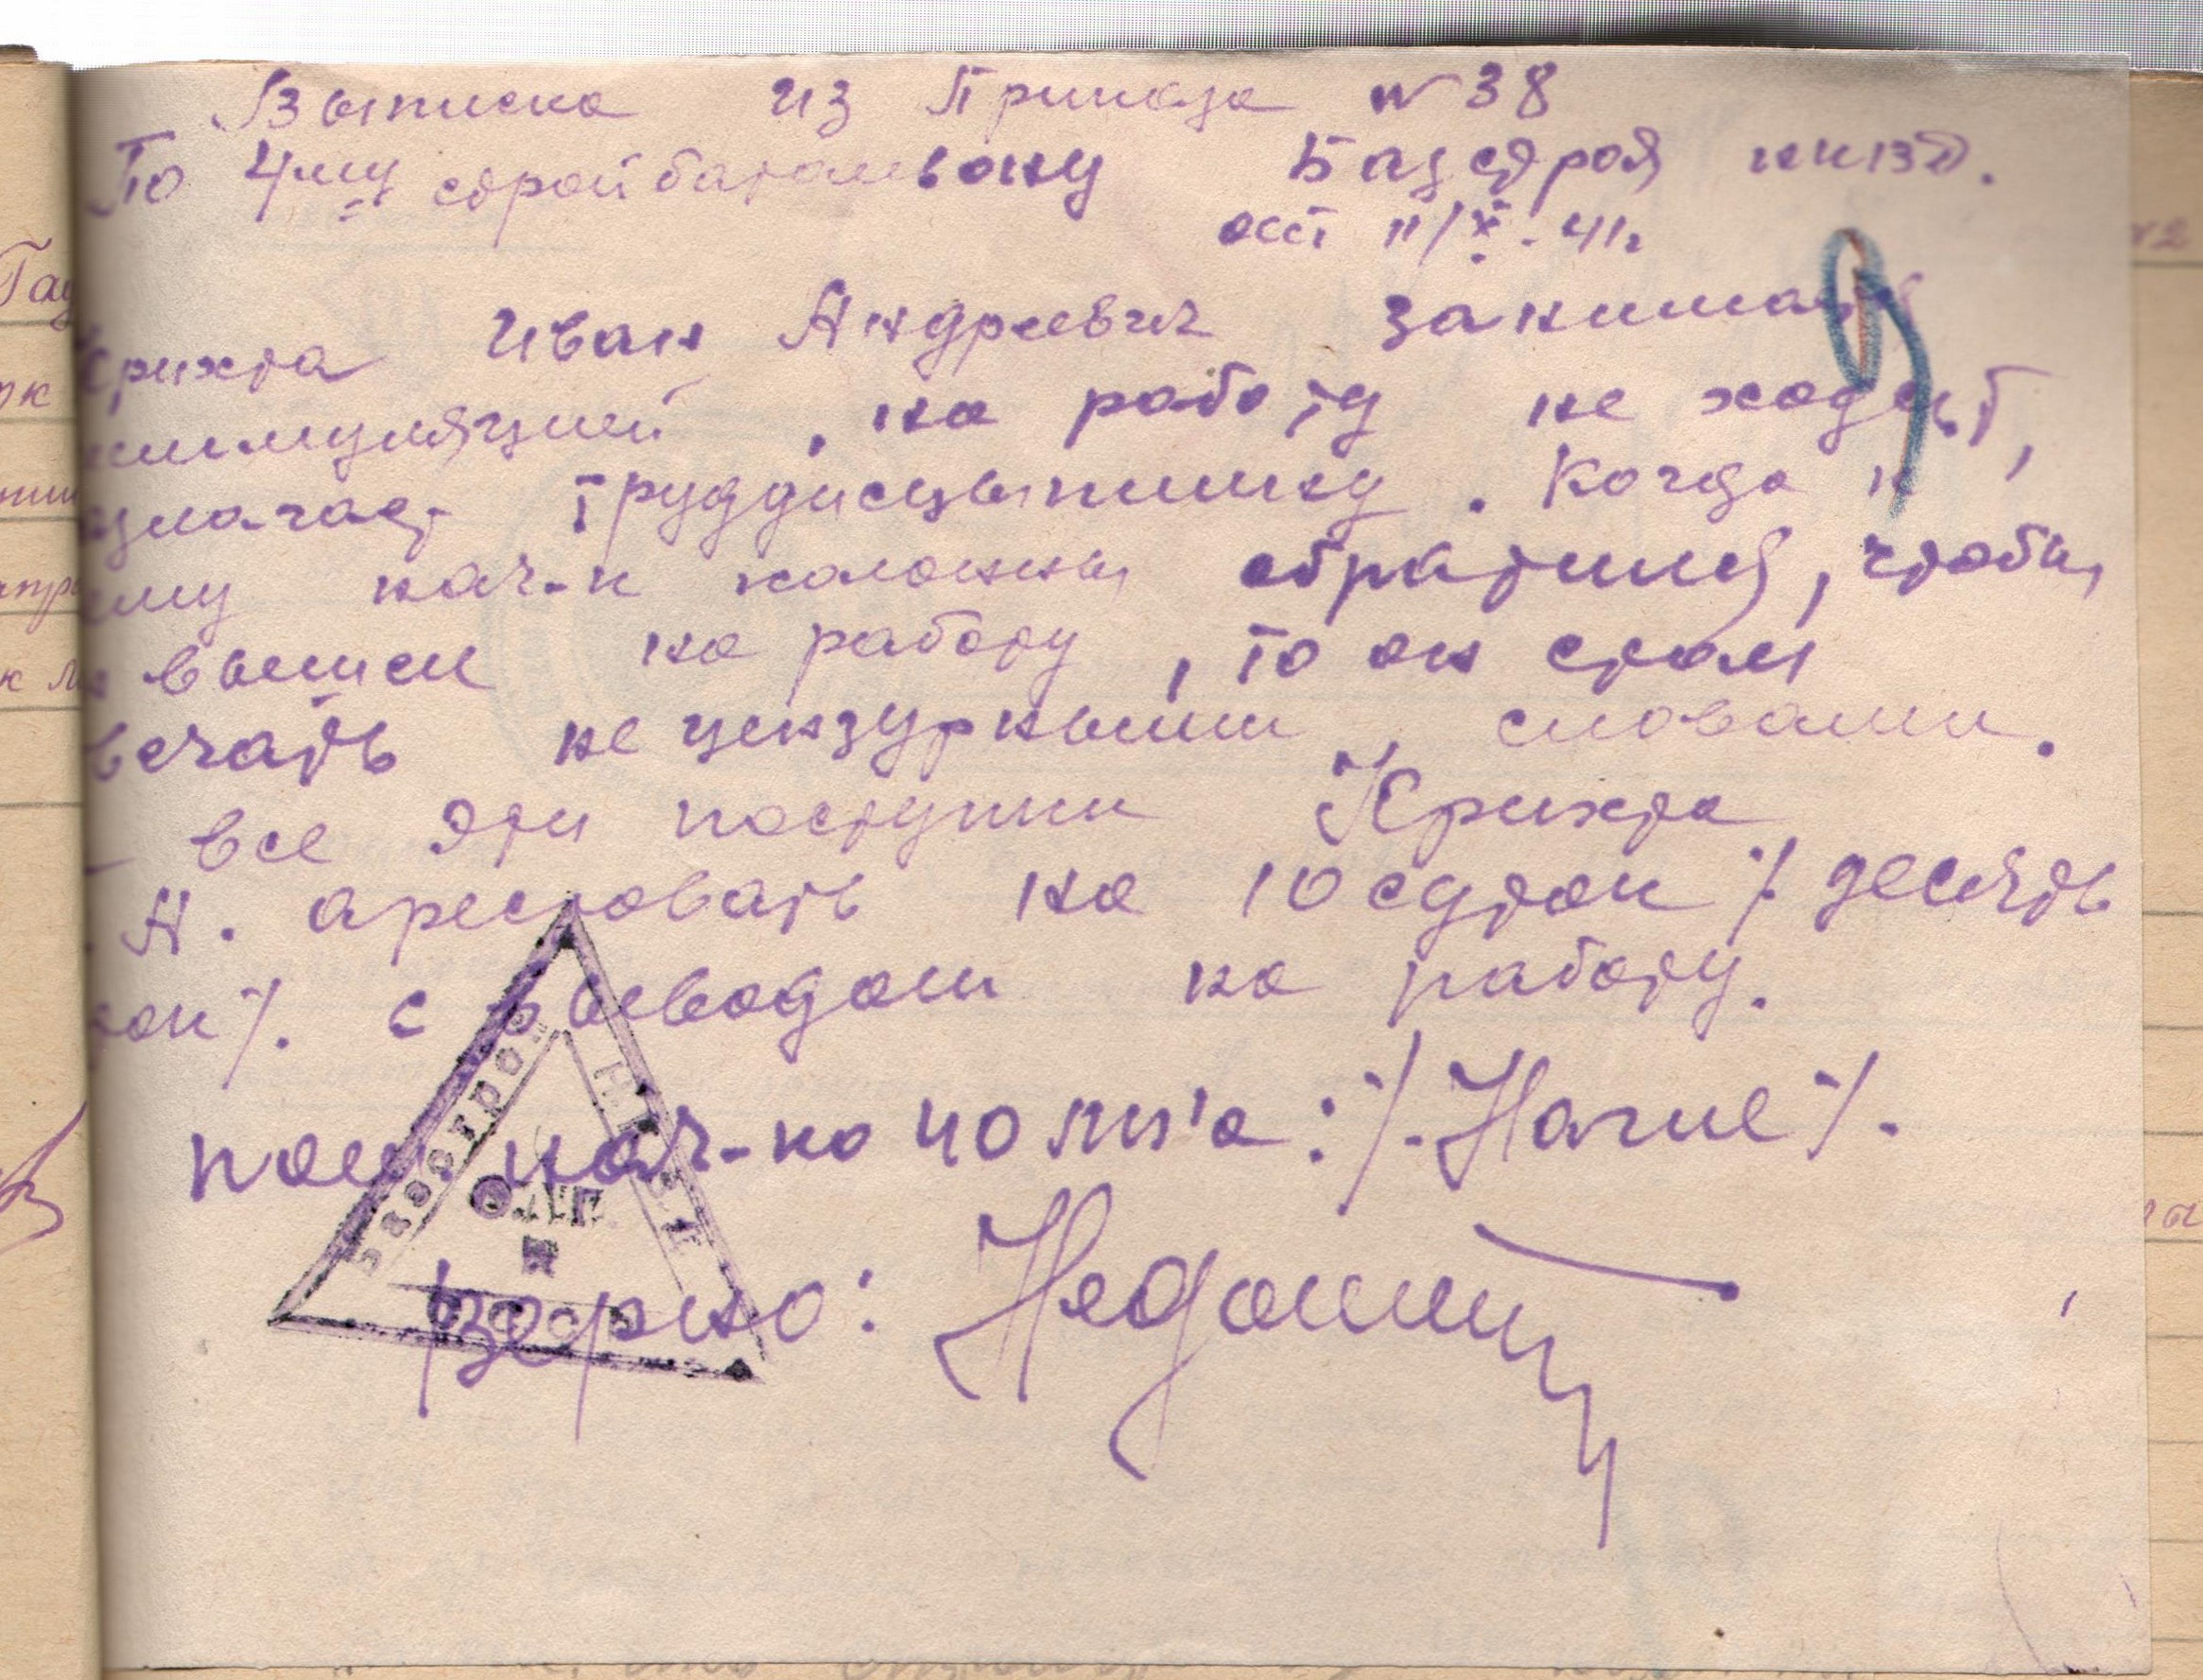 Выписка из Приказа № 38
По 4му стройбатальону Базстроя НКВД.
от 11/X-41г
Крихта Иван Андреевич занимается
симуляцией, на работу не ходит,
трудdисцыплину. Когда к
ему нач-к колонны обратился, чтобы
вышел на работу, то он стал
вечать нецензурными словами.
все эти поступки Крихта
А. арестовать на 10 суток /. десять
ток /. с выводом на работу.
пом. нач-ка : /. /.
Базстрой НКВД
СССР
Верно: